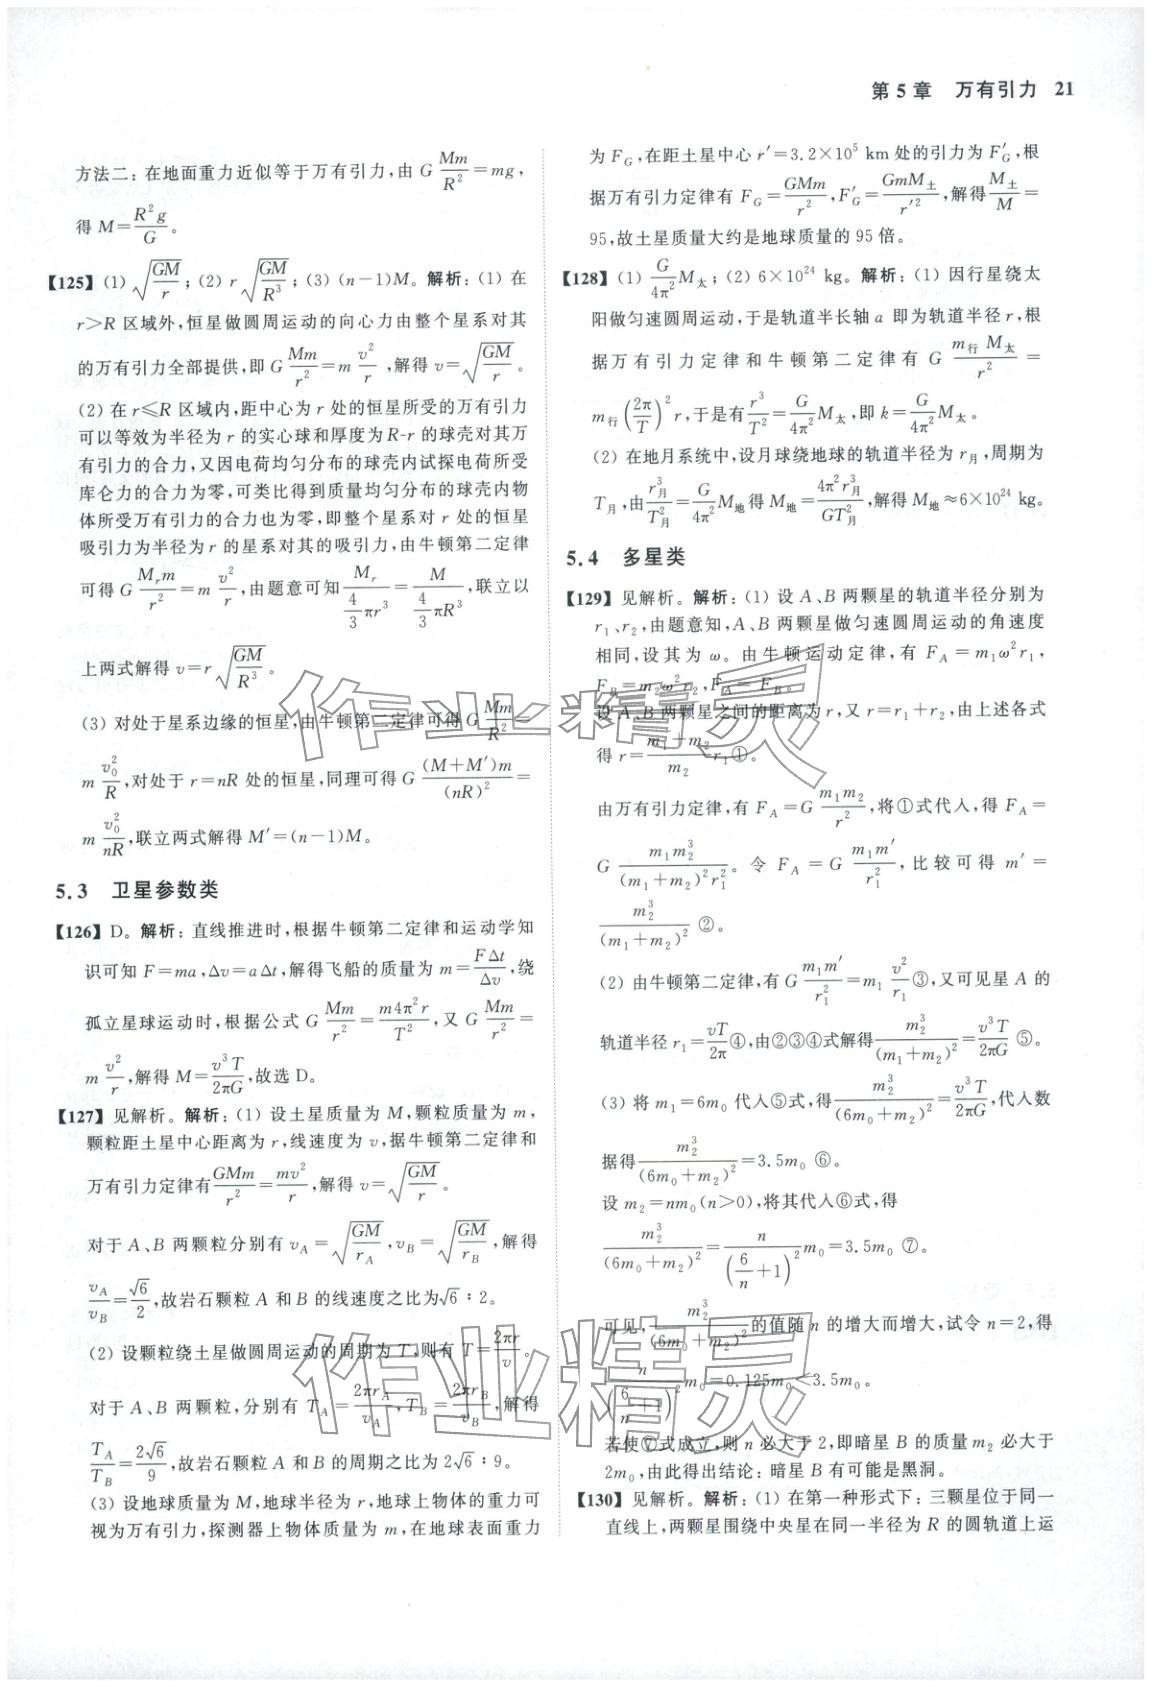 第5章 万有引力 21
方法二：在地面重力近似等于万有引力，由 G\frac{Mm}{R^2}=mg，
得 M=\frac{R^2g}{G}。
【125】(1) \sqrt{\frac{GM}{r}}；(2) r\sqrt{\frac{GM}{R^3}}；(3) (n-1)M。解析：(1) 在
r>R 区域外，恒星做圆周运动的向心力由整个星系对其
的万有引力全部提供，即 G\frac{Mm}{r^2}=m\frac{v^2}{r}，解得 v=\sqrt{\frac{GM}{r}}。
(2) 在 r≤R 区域内，距中心为 r 处的恒星所受的万有引力
可以等效为半径为 r 的实心球和厚度为 R-r 的球壳对其万
有引力的合力，又因电荷均匀分布的球壳内试探电荷所受
库仑力的合力为零，可类比得到质量均匀分布的球壳内物
体所受万有引力的合力也为零，即整个星系对 r 处的恒星
吸引力为半径为 r 的星系对其的吸引力，由牛顿第二定律
可得 G\frac{M_r m}{r^2}=m\frac{v^2}{r}，由题意可知 \frac{M_r}{\frac{4}{3}πr^3}=\frac{M}{\frac{4}{3}πR^3}，联立以
上两式解得 v=r\sqrt{\frac{GM}{R^3}}。
(3) 对处于星系边缘的恒星，由牛顿第二定律可得 G\frac{Mm}{R^2}=
m\frac{v_0^2}{R}，对处于 r=nR 处的恒星，同理可得 G\frac{(M+M')m}{(nR)^2}=
m\frac{v_0^2}{nR}，联立两式解得 M'=(n-1)M。
5.3 卫星参数类
【126】D。解析：直线推进时，根据牛顿第二定律和运动学知
识可知 F=ma，Δv=aΔt，解得飞船的质量为 m=\frac{FΔt}{Δv}，绕
孤立星球运动时，根据公式 G\frac{Mm}{r^2}=\frac{m4π^2r}{T^2}，又 G\frac{Mm}{r^2}=
m\frac{v^2}{r}，解得 M=\frac{v^3T}{2πG}，故选 D。
【127】见解析。解析：(1) 设土星质量为 M，颗粒质量为 m，
颗粒距土星中心距离为 r，线速度为 v，据牛顿第二定律和
万有引力定律有 \frac{GMm}{r^2}=\frac{mv^2}{r}，解得 v=\sqrt{\frac{GM}{r}}。
对于 A、B 两颗粒分别有 v_A=\sqrt{\frac{GM}{r_A}}，v_B=\sqrt{\frac{GM}{r_B}}，解得
\frac{v_A}{v_B}=\frac{\sqrt{6}}{2}，故岩石颗粒 A 和 B 的线速度之比为 \sqrt{6}：2。
(2) 设颗粒绕土星做圆周运动的周期为 T，则有 T=\frac{2πr}{v}。
对于 A、B 两颗粒，分别有 T_A=\frac{2πr_A}{v_A}，T_B=\frac{2πr_B}{v_B}，解得
\frac{T_A}{T_B}=\frac{2\sqrt{6}}{9}，故岩石颗粒 A 和 B 的周期之比为 2\sqrt{6}：9。
(3) 设地球质量为 M，地球半径为 r，地球上物体的重力可
视为万有引力，探测器上物体质量为 m，在地球表面重力
为 F_G，在距土星中心 r'=3.2×10^5 km 处的引力为 F'_G，根
据万有引力定律有 F_G=\frac{GMm}{r^2}，F'_G=\frac{GmM_土}{r'^2}，解得 \frac{M_土}{M}=
95，故土星质量大约是地球质量的 95 倍。
【128】(1) \frac{G}{4π^2}M_太；(2) 6×10^{24} kg。解析：(1) 因行星绕太
阳做匀速圆周运动，于是轨道半长轴 a 即为轨道半径 r，根
据万有引力定律和牛顿第二定律有 G\frac{m_行 M_太}{r^2}=
m_行(\frac{2π}{T})^2 r，于是有 \frac{r^3}{T^2}=\frac{G}{4π^2}M_太，即 k=\frac{G}{4π^2}M_太。
(2) 在地月系统中，设月球绕地球的轨道半径为 r_月，周期为
T_月，由 \frac{r_月^3}{T_月^2}=\frac{G}{4π^2}M_地 得 M_地=\frac{4π^2r_月^3}{GT_月^2}，解得 M_地≈6×10^{24} kg。
5.4 多星类
【129】见解析。解析：(1) 设 A、B 两颗星的轨道半径分别为
r_1、r_2，由题意知，A、B 两颗星做匀速圆周运动的角速度
相同，设其为 ω。由牛顿运动定律，有 F_A=m_1ω^2r_1，
F_B=m_2ω^2r_2，F_A=F_B。
设 A、B 两颗星之间的距离为 r，又 r=r_1+r_2，由上述各式
得 r=\frac{m_1+m_2}{m_2}r_1①。
由万有引力定律，有 F_A=G\frac{m_1m_2}{r^2}，将①式代入，得 F_A=
G\frac{m_1m_2^3}{(m_1+m_2)^2r_1^2}。令 F_A=G\frac{m_1m'}{r_1^2}，比较可得 m'=
\frac{m_2^3}{(m_1+m_2)^2} ②。
(2) 由牛顿第二定律，有 G\frac{m_1m'}{r_1^2}=m_1\frac{v^2}{r_1}③，又可见星 A 的
轨道半径 r_1=\frac{vT}{2π}④，由②③④式解得 \frac{m_2^3}{(m_1+m_2)^2}=\frac{v^3T}{2πG} ⑤。
(3) 将 m_1=6m_0 代入⑤式，得 \frac{m_2^3}{(6m_0+m_2)^2}=\frac{v^3T}{2πG}，代入数
据得 \frac{m_2^3}{(6m_0+m_2)^2}=3.5m_0 ⑥。
设 m_2=nm_0(n>0)，将其代入⑥式，得
\frac{m_2^3}{(6m_0+m_2)^2}=\frac{n}{(\frac{6}{n}+1)^2}m_0=3.5m_0 ⑦。
可见，\frac{m_2^3}{(6m_0+m_2)^2} 的值随 n 的增大而增大，试令 n=2，得
\frac{n}{(\frac{6}{n}+1)^2}m_0=0.125m_0<3.5m_0。
若使⑦式成立，则 n 必大于 2，即暗星 B 的质量 m_2 必大于
2m_0，由此得出结论：暗星 B 有可能是黑洞。
【130】见解析。解析：(1) 在第一种形式下：三颗星位于同一
直线上，两颗星围绕中央星在同一半径为 R 的圆轨道上运
作业精灵
作业精灵